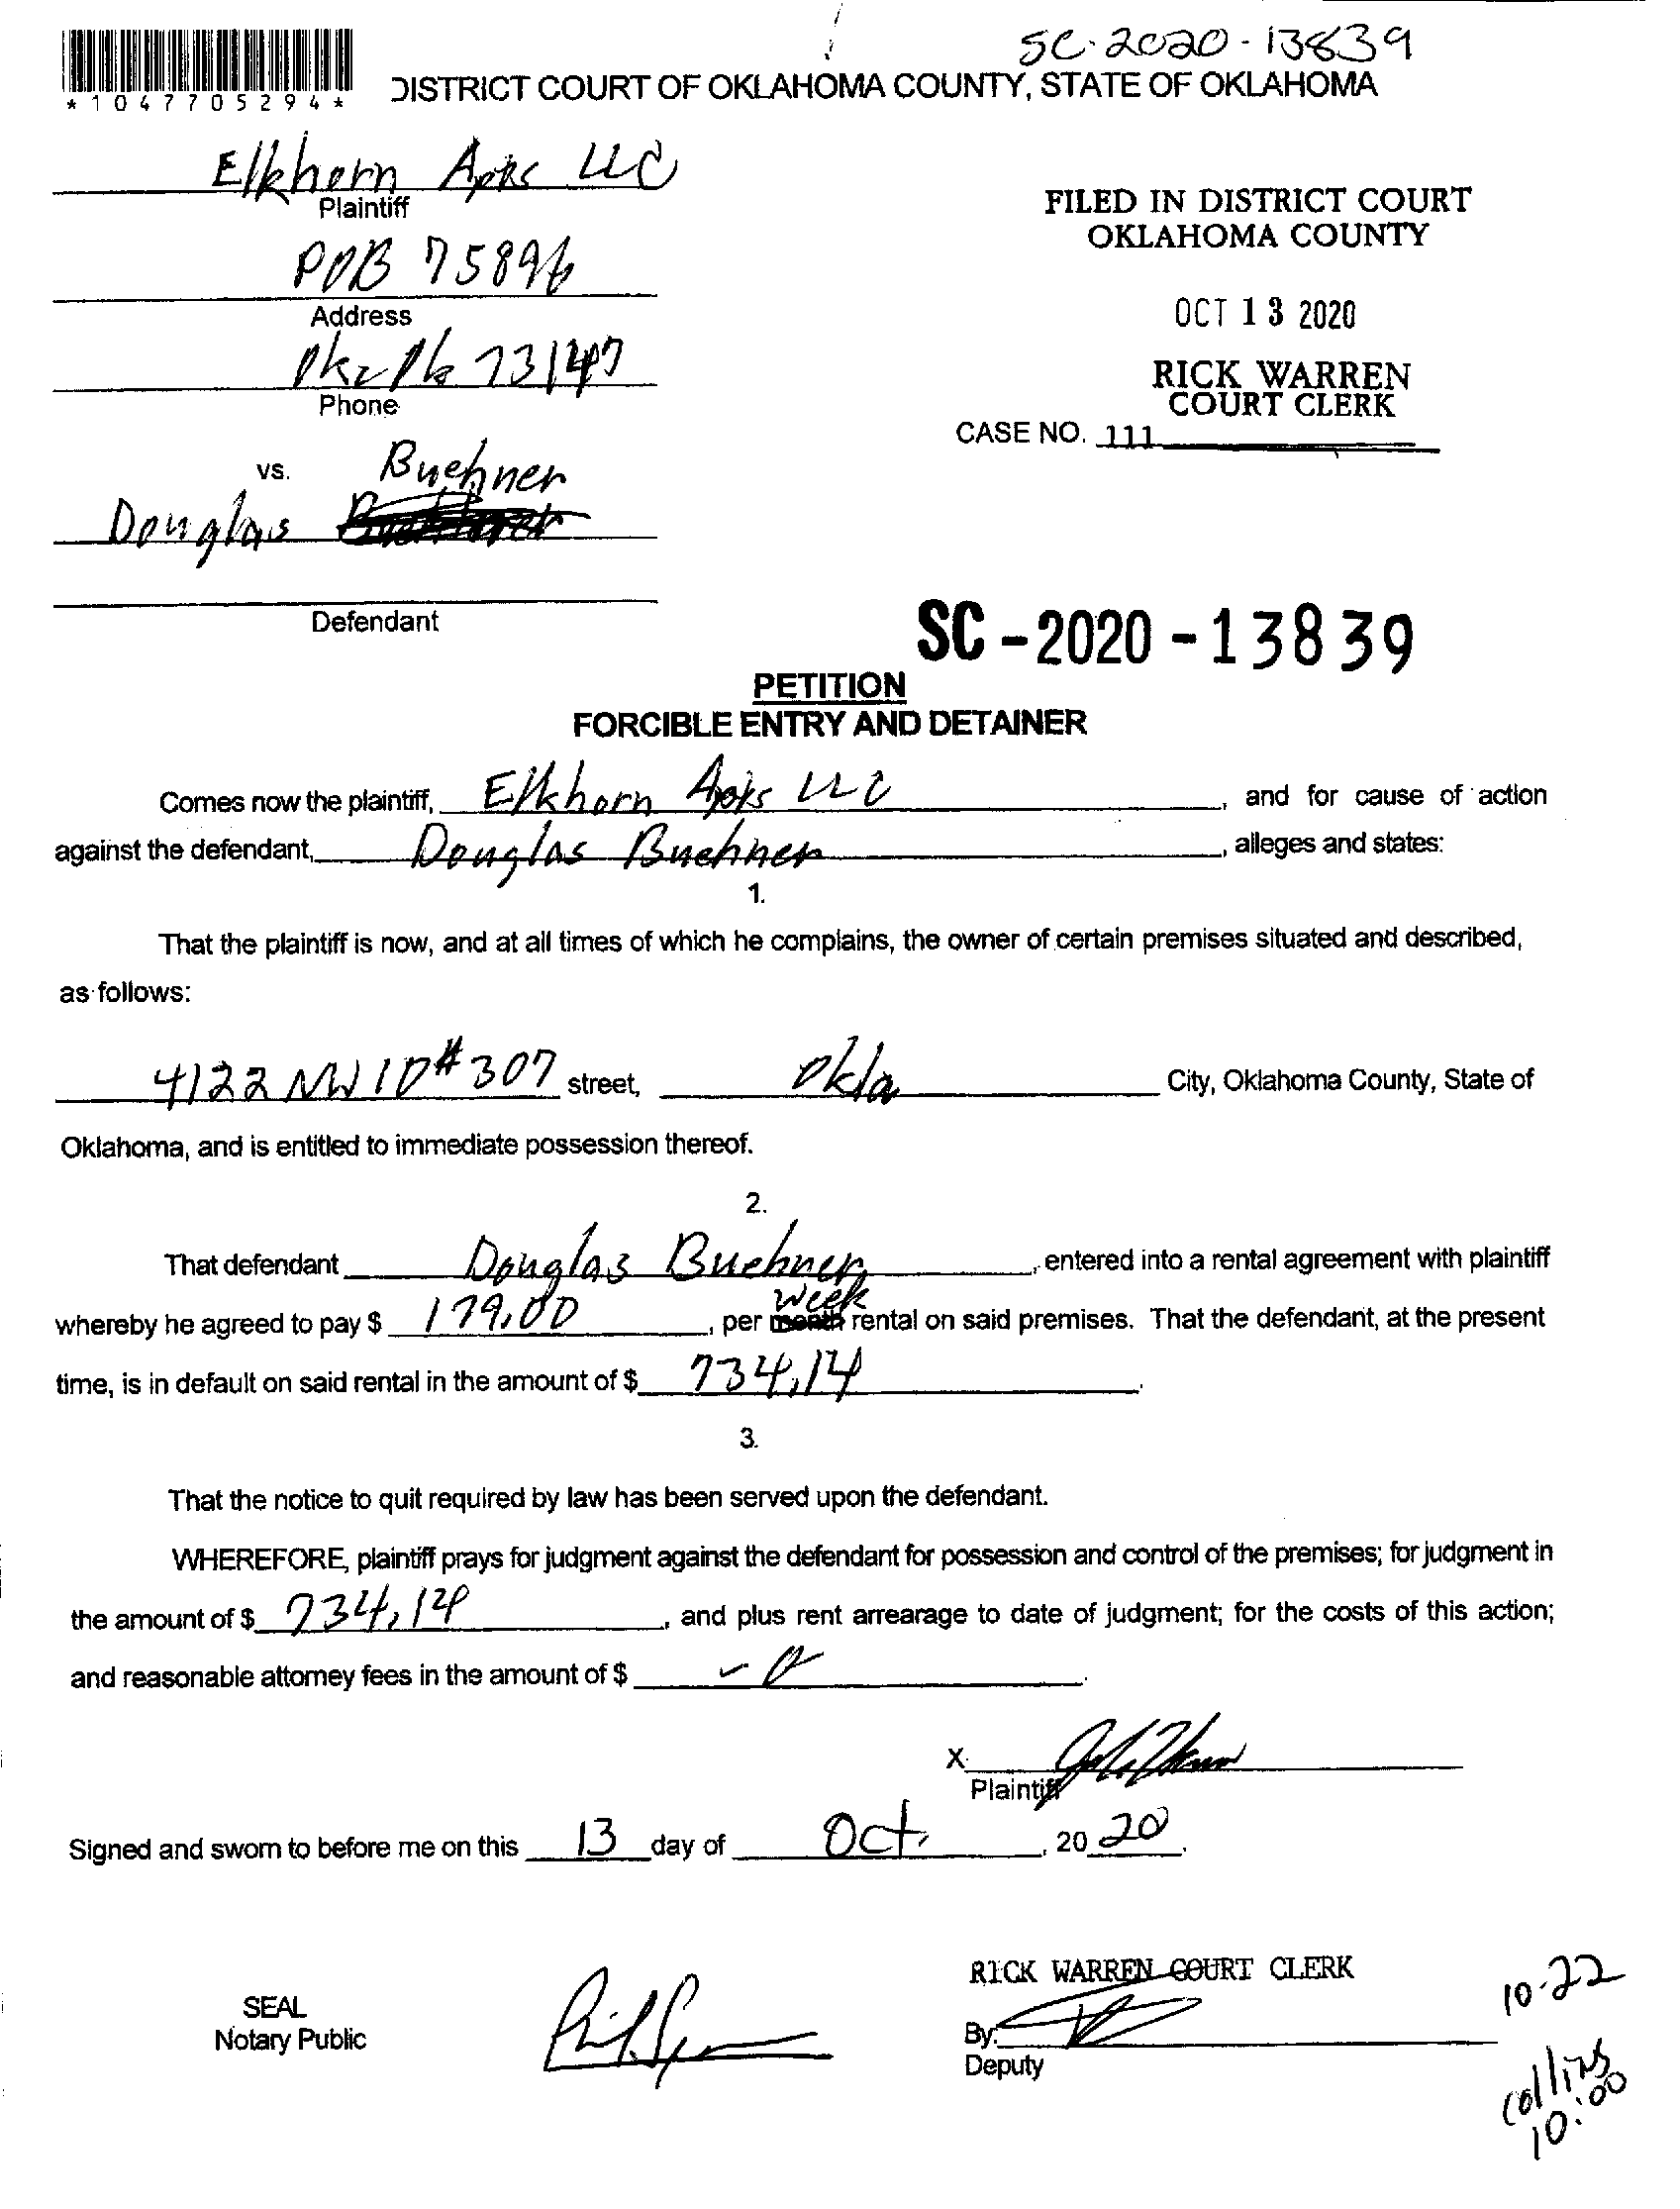 SC-2020-13839
*1047705294*
DISTRICT COURT OF OKLAHOMA COUNTY, STATE OF OKLAHOMA
Elkhorn Apts LLC
Plaintiff
FILED IN DISTRICT COURT
OKLAHOMA COUNTY
POB 75896
Address
OCT 13 2020
Okc Ok 73147
Phone
RICK WARREN
COURT CLERK
CASE NO. 111
vs. Buehner
Douglas
Defendant
SC-2020-13839
PETITION
FORCIBLE ENTRY AND DETAINER
Comes now the plaintiff, Elkhorn Apts LLC, and for cause of action
against the defendant, Douglas Buehner, alleges and states:
1.
That the plaintiff is now, and at all times of which he complains, the owner of certain premises situated and described,
as follows:
4122 NW 10 #307 street, Okla City, Oklahoma County, State of
Oklahoma, and is entitled to immediate possession thereof.
2.
That defendant Douglas Buehner, entered into a rental agreement with plaintiff
week
whereby he agreed to pay $ 179.00, per month rental on said premises. That the defendant, at the present
time, is in default on said rental in the amount of $ 734.14.
3.
That the notice to quit required by law has been served upon the defendant.
WHEREFORE, plaintiff prays for judgment against the defendant for possession and control of the premises; for judgment in
the amount of $ 734.14, and plus rent arrearage to date of judgment; for the costs of this action;
and reasonable attorney fees in the amount of $ -0.
X
Plaintiff
Signed and sworn to before me on this 13 day of Oct, 20 20.
RICK WARREN COURT CLERK
10-22
SEAL
Notary Public
By:
Deputy
Collins
10:00